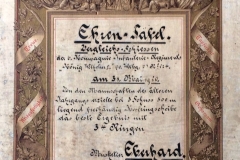 Ehren-Tafel.
Vergleichs-Schiessen
der 2. Kompagnie Infanterie-Regiments
König Wilhelm I.
am 31. Mai
Von den Mannschaften des älteren
Jahrgangs erzielte bei 3 Schuss 300 m
liegend freihändig Ringscheibe
das beste Ergebnis mit
34 Ringen
Musketier Eberhard.